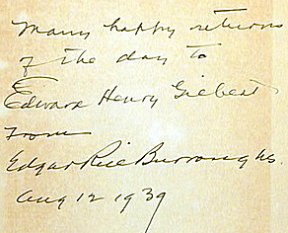 Many happy returns
of the day to
Edward Henry Gilbert
From
Edgar Rice Burroughs.
Aug 12 1939